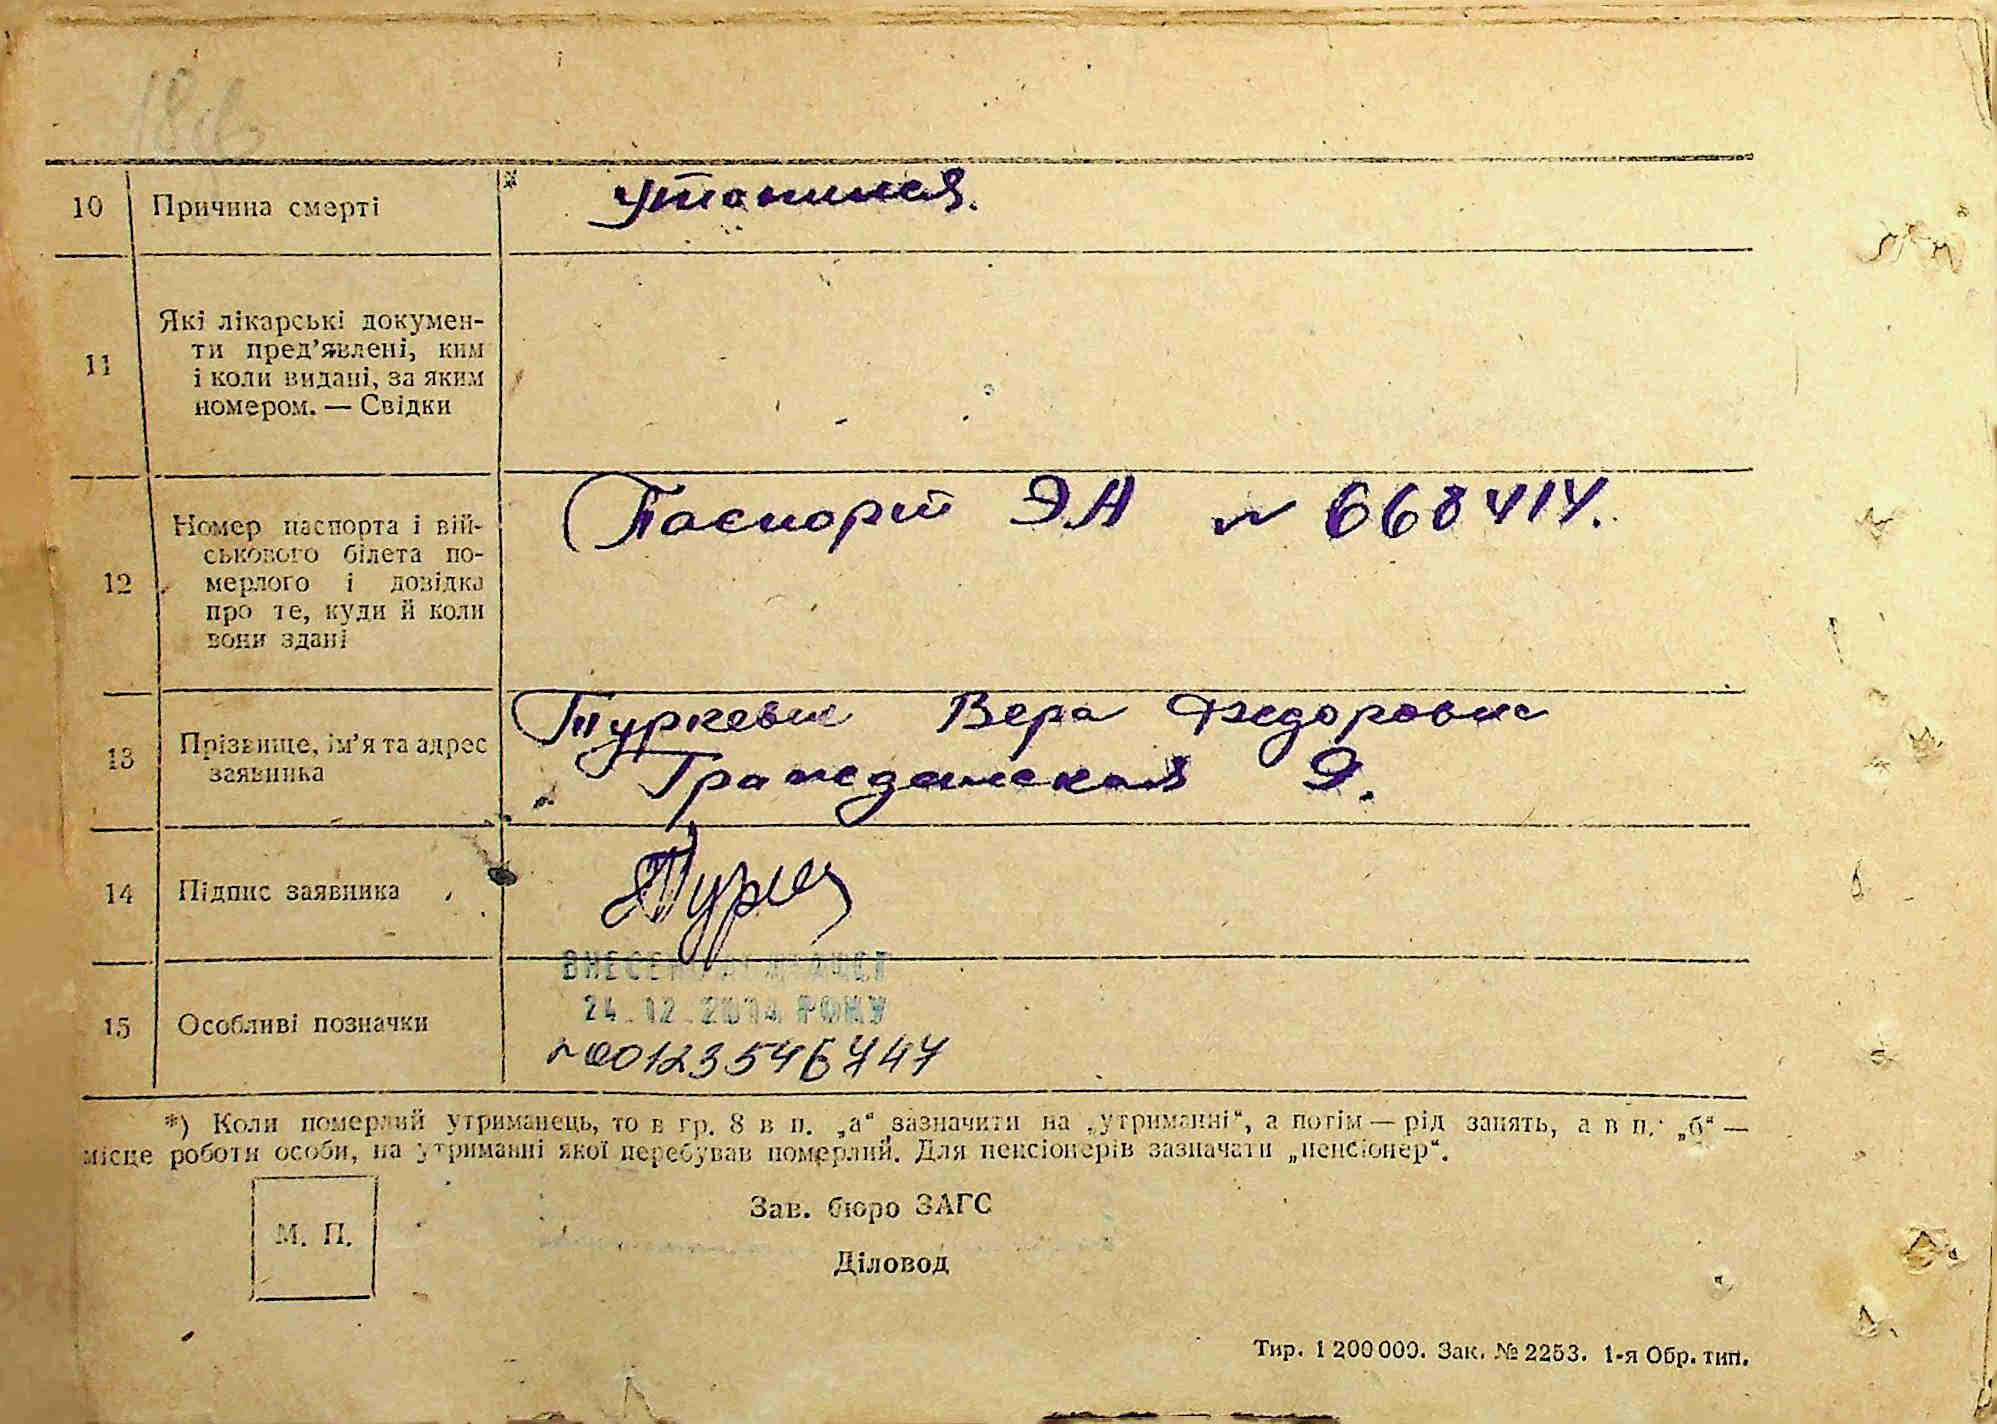 10 Причина смерті
утонился.
11 Які лікарські докумен-
ти пред'явлені, ким
і коли видані, за яким
номером. — Свідки
12 Номер паспорта і вій-
ськового білета по-
мерлого і довідка
про те, куди й коли
вони здані
Паспорт ЭА № 668414.
13 Прізвище, ім'я та адрес
заявника
Туркевич Вера Федоровна
Гражданская 9.
14 Підпис заявника
15 Особливі позначки
24.12.2014 РОКУ
№00123546747
*) Коли померлий утриманець, то в гр. 8 в п. „а“ зазначити на „утриманні“, а потім — рід занять, а в п. „б“ —
місце роботи особи, на утриманні якої перебував померлий. Для пенсіонерів зазначати „пенсіонер“.
М. П.
Зав. бюро ЗАГС
Діловод
Тир. 1 200 000. Зак. № 2253. 1-я Обр. тип.